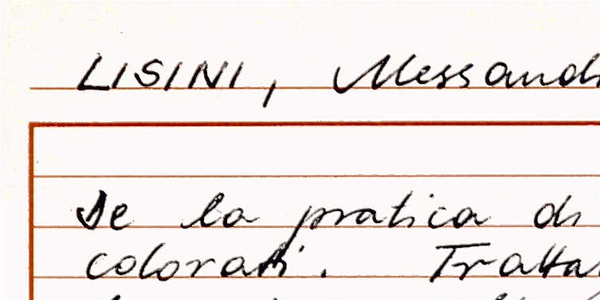 LISINI, Alessand
De la pratica di
colorati. Tratta